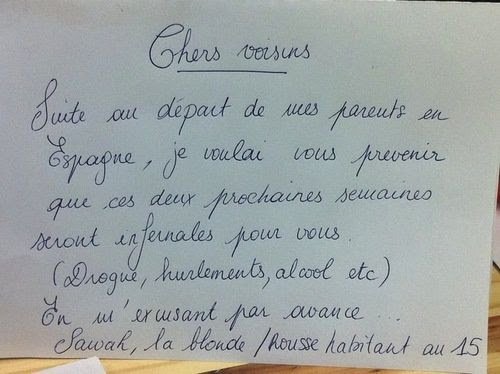 Chers voisins
Suite au départ de mes parents en
Espagne, je voulai vous prevenir
que ces deux prochaines semaines
seront infernales pour vous.
(Drogue, hurlements, alcool etc)
En m'excusant par avance ...
Sawah, la blonde / Rousse habitant au 15